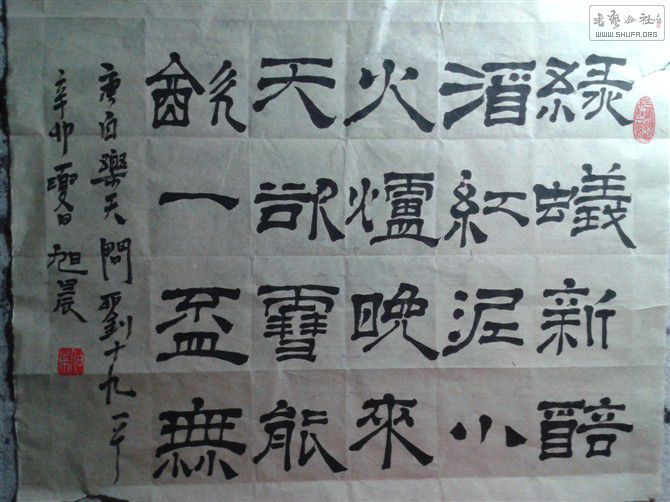 書藝公社
WWW.SHUFA.ORG
綠蟻新醅
酒紅泥小
火爐晚來
天欲雪能
飲一盃無
唐白樂天問劉十九
辛卯旭晨